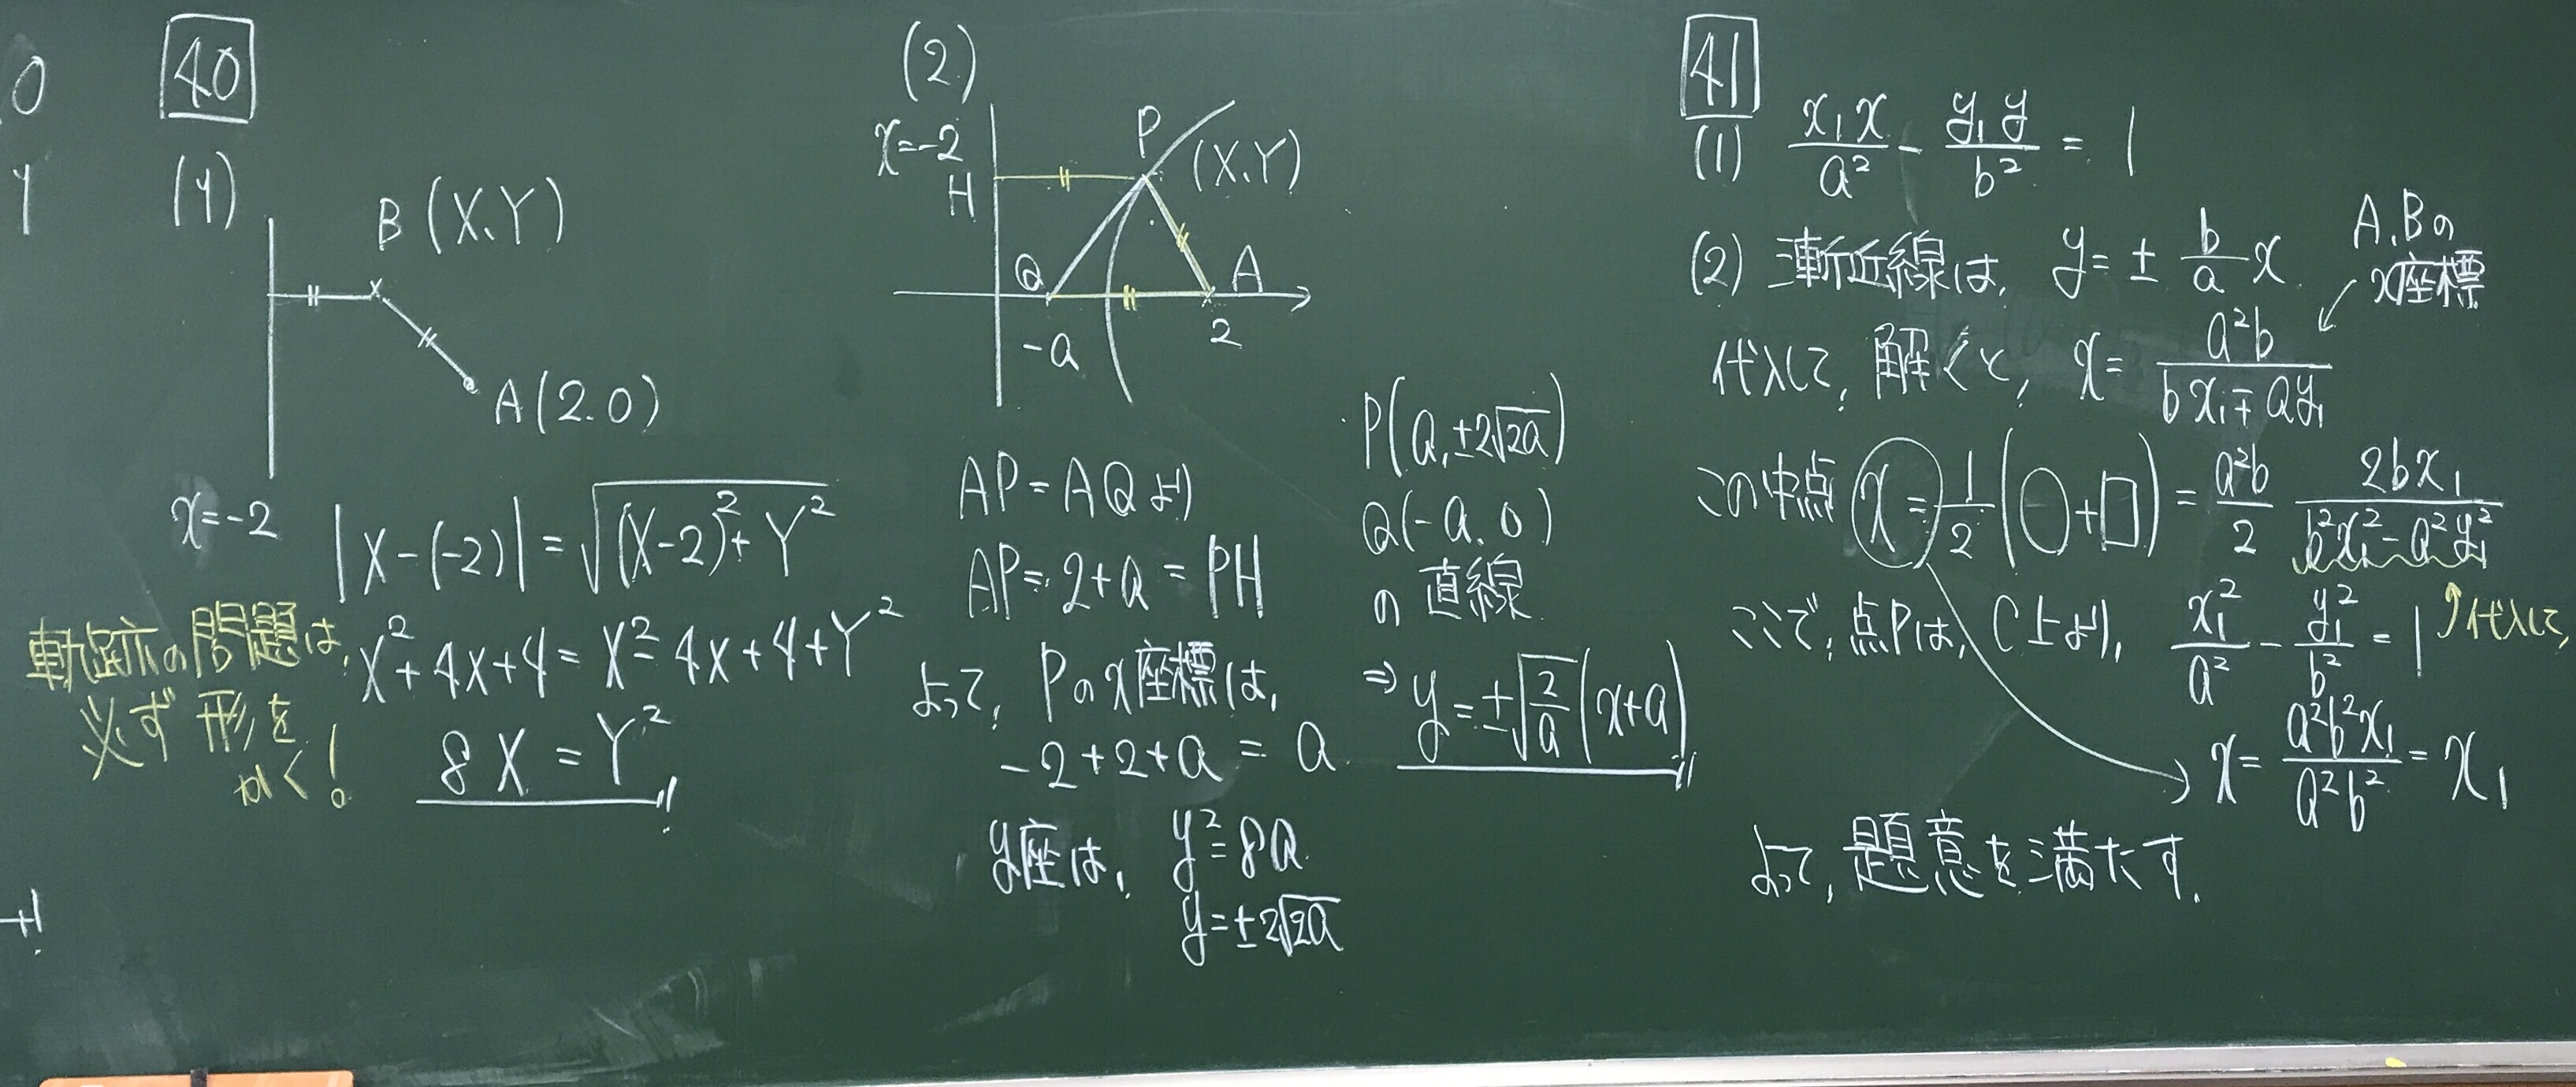 0
Y
40
(1)
B (X,Y)
A(2.0)
x=-2
|X-(-2)|=√(X-2)²+Y²
X²+4X+4=X²-4X+4+Y²
8X=Y²
軌跡の問題は,
必ず形を
かく!
(2)
x=-2
H
P
(X,Y)
Q
A
-a
2
AP=AQより
AP=2+a=PH
よって, Pのx座標は,
-2+2+a=a
y座は, y²=8a
y=±2√2a
P(a,±2√2a)
Q(-a,0)
の直線
⇒y=±√2/a(x+a)
41
(1) x₁x/a²-y₁y/b²=1
(2) 漸近線は, y=±b/a x
A,Bの
x座標
代入して, 解くと, x=a²b/bx₁∓ay₁
この中点 x=1/2(○+□)=a²b/2 2bx₁/b²x₁²-a²y₁²
ここで, 点Pは, C上より, x₁²/a²-y₁²/b²=1
↑代入して,
x=a²b²x₁/a²b²=x₁
よって, 題意を満たす.